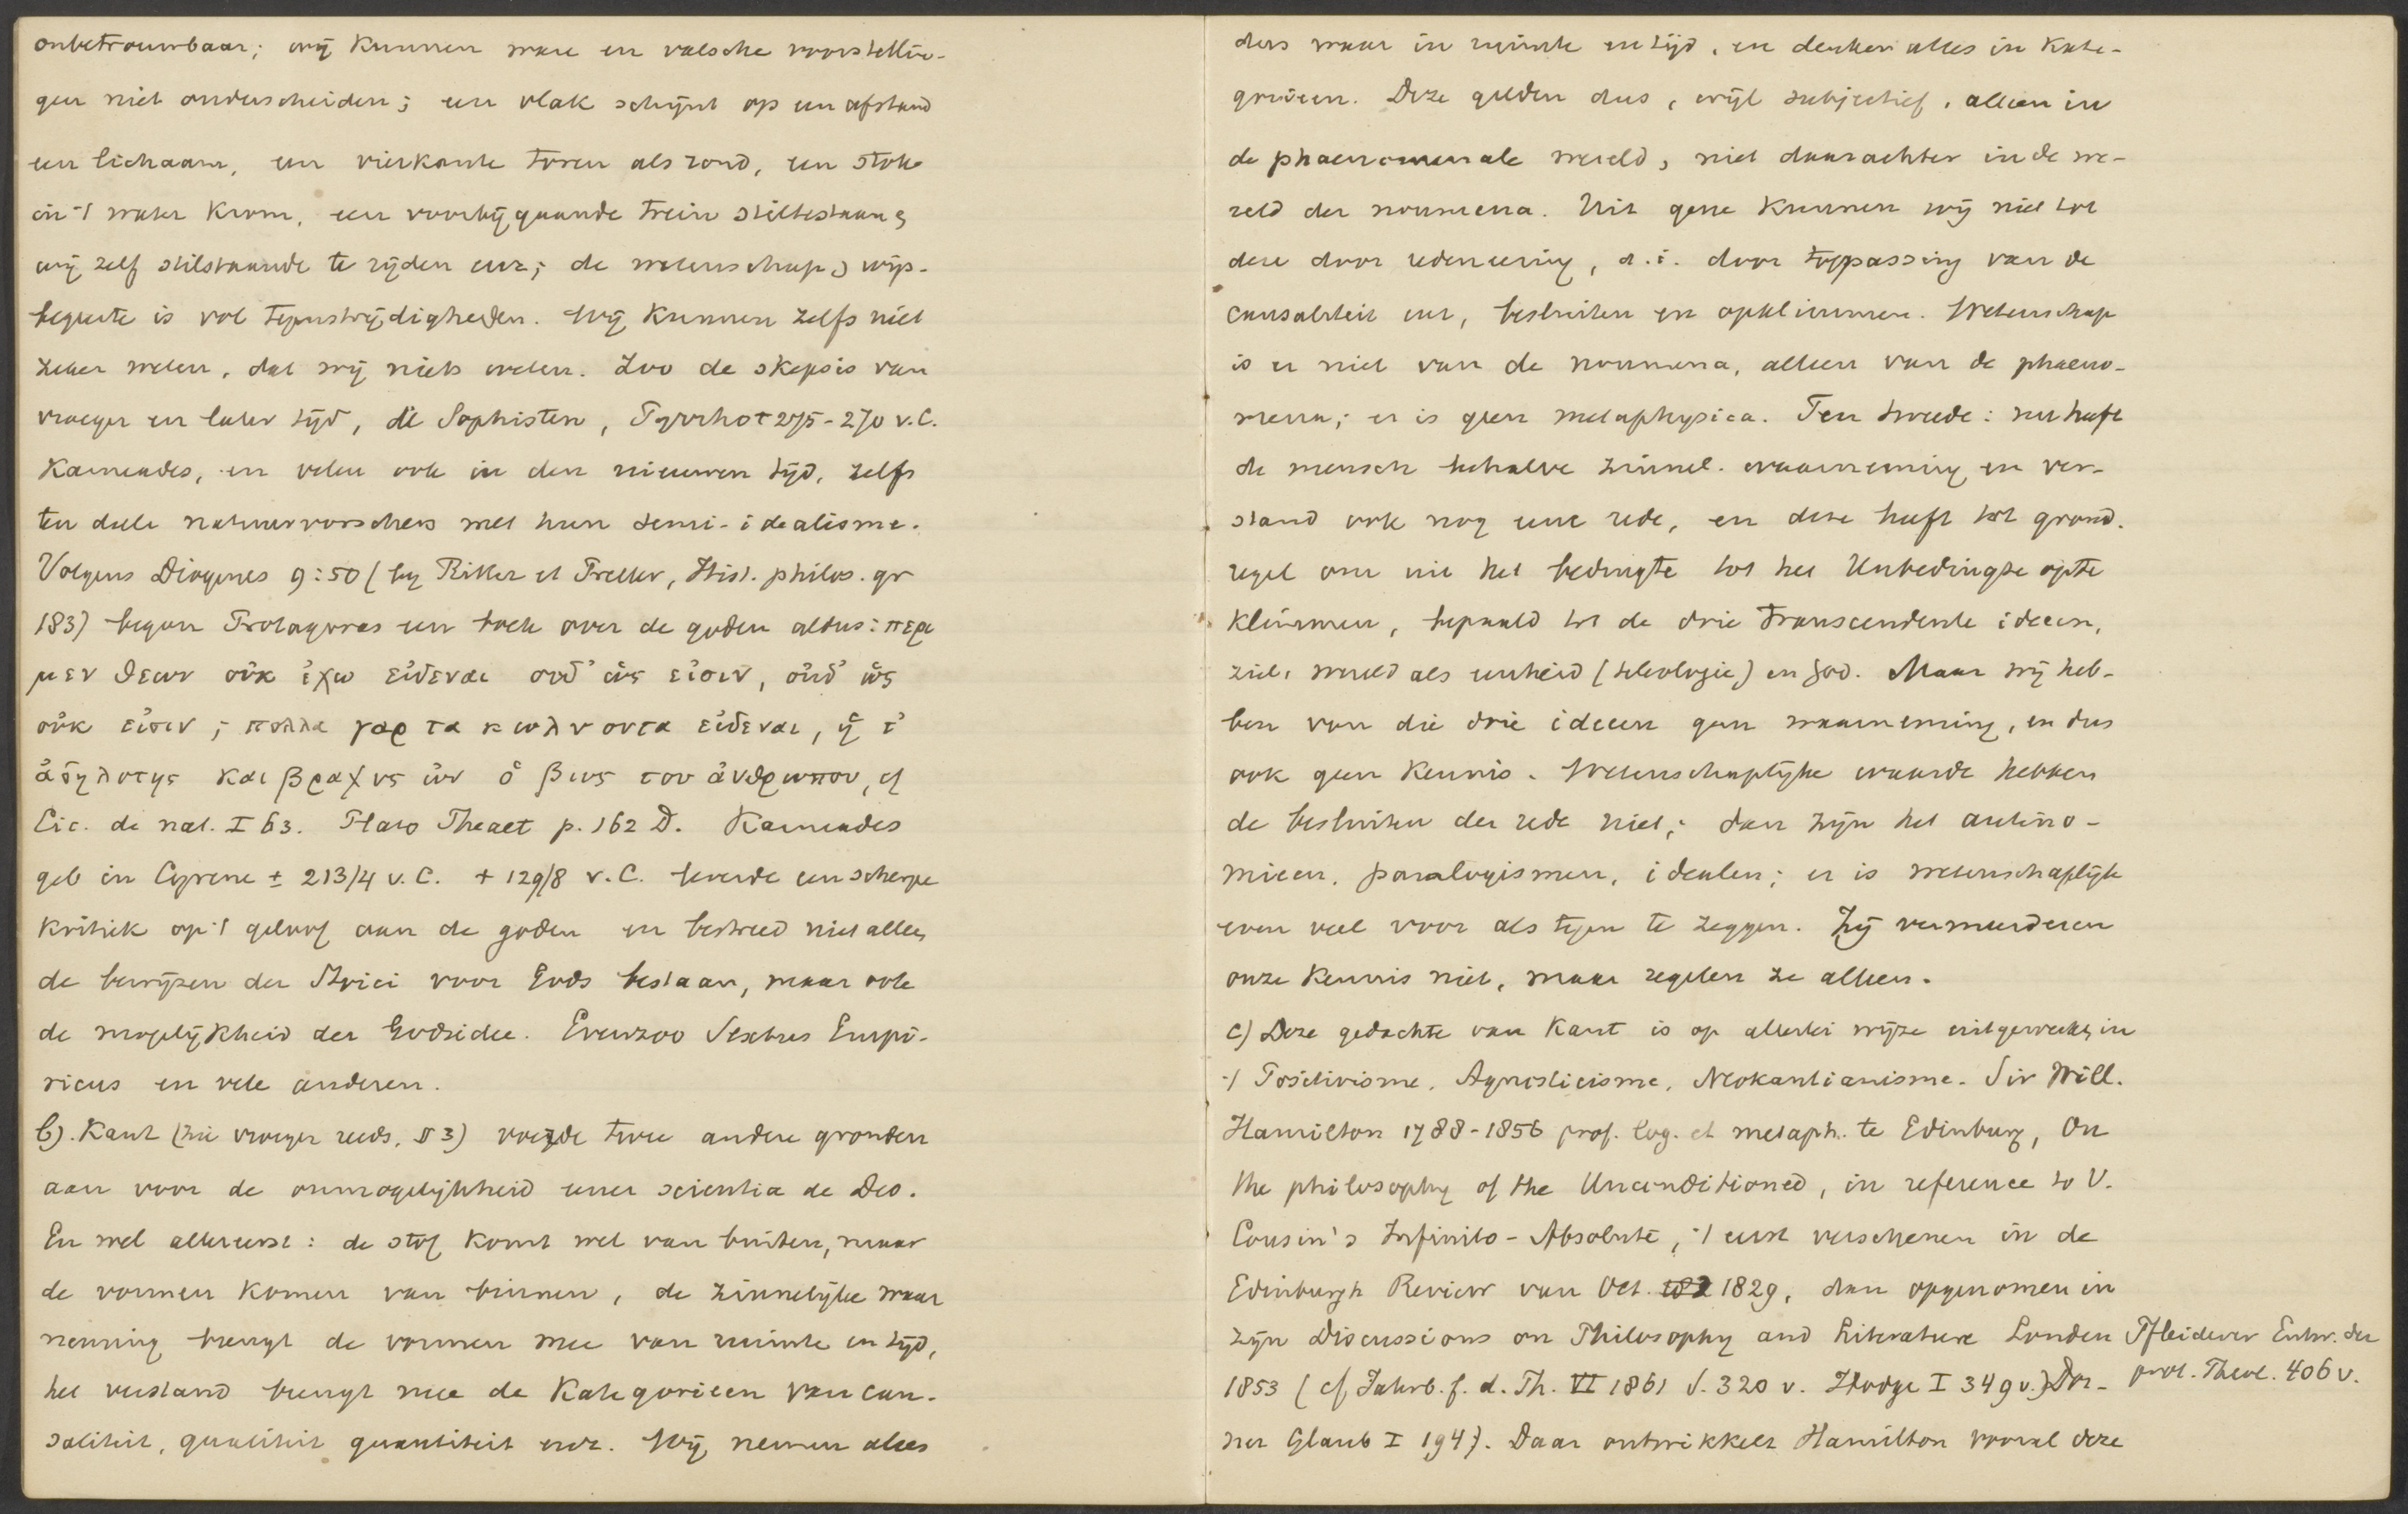 onbetrouwbaar; wij kunnen ware en valsche voorstellin-
gen niet onderscheiden; een vlak schijnt op een afstand
een lichaam, een vierkante toren als rond, een stok
in 't water krom, een voorbijgaande trein stilstaand,
wij zelf stilstaande te rijden enz; de wetenschap, wijs-
begeerte is vol tegenstrijdigheden. Wij kunnen zelfs niet
zeker weten, dat wij niets weten. Zoo de skepsis van
vroeger en later tijd, de Sophisten, Pyrrho † 275-270 v.C.
Karneades, en velen ook in den nieuwen tijd, zelfs
ten deele natuurvorschers met hun semi-idealisme.
Volgens Diogenes 9:50 (by Ritter et Preller, Hist. philos. gr
183) begon Protagoras een boek over de goden aldus: περι
μεν θεων οὐκ ἐχω εἰδεναι οὐδ' ὡς εἰσιν, οὐδ' ὡς
οὐκ εἰσιν; πολλα γαρ τα κωλνοντα εἰδεναι, ἡ τ'
ἀδηλοτης και βραχυς ὠν ὁ βιος του ἀνθρωπου, cf
Cic. de nat. I 63. Plato Theaet p. 162 D. Karneades
geb in Cyrene ± 213/4 v.C. + 129/8 v.C. leverde een scherpe
kritiek op 't geloof aan de goden en bestreed niet alleen
de bewijzen der Stoici voor Gods bestaan, maar ook
de mogelijkheid der Godsidee. Evenzoo Sextus Empi-
ricus en vele anderen.
b). Kant (zie vroeger reeds, § 3) voegde twee andere gronden
aan voor de onmogelijkheid eener scientia de Deo.
En wel allereerst: de stof komt wel van buiten, maar
de vormen komen van binnen, de zinnelijke waar
neming brengt de vormen mee van ruimte en tijd,
het verstand brengt mee de Kategorieen van cau-
saliteit, qualiteit quantiteit enz. Wij nemen alles
ders waar in ruimte en tijd, en denken alles in Kate-
gorieen. Deze gelden dus, wijl subjectief, alleen in
de phaenomenale wereld, niet daarachter in de we-
reld der noumena. Uit gene kunnen wij niet tot
deze door redeneering, d.i. door toepassing van de
causaliteit enz, besluiten en opklimmen. Wetenschap
is er niet van de noumena, alleen van de phaeno-
mena; er is geen metaphysica. Ten tweede: nu heeft
de mensch behalve zinnel. waarneming en ver-
stand ook nog eene rede, en deze heeft tot grond.
regel om uit het bedingte tot het Unbedingte op te
klimmen, bepaald tot de drie transcendente ideeen,
ziel, wereld als eenheid (teleologie) en God. Maar wij heb-
ben van die drie ideeen geen waarneming, en dus
ook geen kennis. Wetenschaplijke waarde hebben
de besluiten der rede niet; dan zijn het antino-
mieen, paralogismen, idealen; er is wetenschaplijk
even veel voor als tegen te zeggen. Zij vermeerderen
onze kennis niet, maar regelen ze alleen.
c) Deze gedachte van Kant is op allerlei wijze uitgewerkt, in
't Positivisme, Agnosticisme, Neokantianisme. Sir Will.
Hamilton 1788-1856 prof. log. et metaph. te Edinburg, On
the philosophy of the Unconditioned, in reference to V.
Cousin's Infinito-Absolute, 't eerst verschenen in de
Edinburgh Review van Oct. 1829, dan opgenomen in
zijn Discussions on Philosophy and Literature London
1853 (cf Jahrb. f. d. Th. VI 1861 S. 320 v. Hodge I 349 v.) Dor-
ner Glaub I 194). Daar ontwikkelt Hamilton vooral deze
Pfleiderer Entw. der
prot. Theol. 406 v.